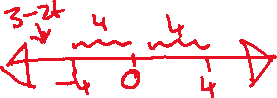 3-2t
4 4
-4 0 4